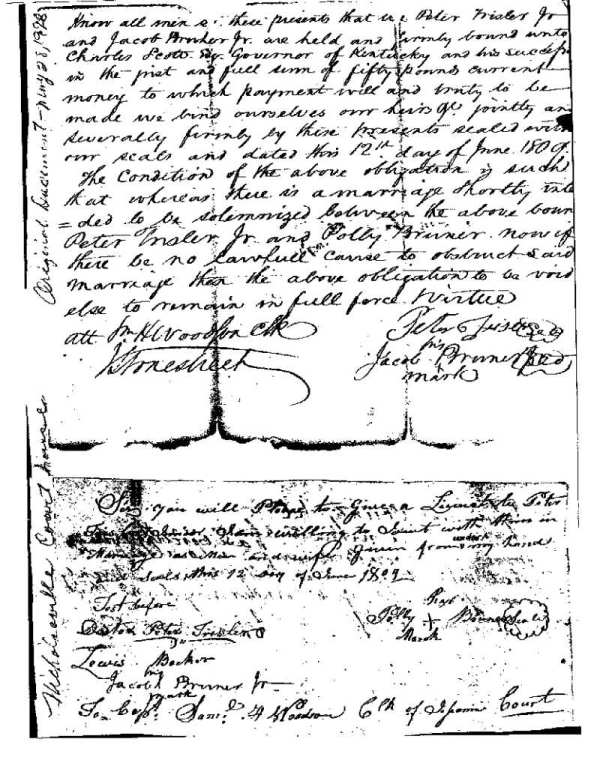 Know all men by these presents that we Peter Frisler Jr
and Jacob Bruner Jr. are held and firmly bound unto
Charles Scott Esq. Governor of Kentucky and his successr
in the just and full sum of fifty pounds current
money to which payment will and truly to be
made we bind ourselves our heirs &c jointly an
severally firmly by these presents sealed with
our seals and dated this 12th day of June 1809.
The Condition of the above obligation is such
that whereas there is a marriage shortly inte
=ded to be solemnized between the above boun
Peter Frisler Jr. and Polly Bruner now if
there be no lawfull cause to obstruct said
marriage then the above obligation to be void
else to remain in full force & Virtue
att H Woodson Clk
Stonestreet
Peter
his
Jacob Bruner Jr
mark
Original Document - May 28, 1928
Nicholasville Court House
Sir you will Please to Give a to Peter
I am willing to with them in
as Man and wife Given from under my hand
and Seals this 12 day of June 1809
Test before
Peter
Lewis
Jacob Bruner Jr
mark
Polly + Bruner Seal
Mark
To Capt. Saml. H Woodson Clk of Court